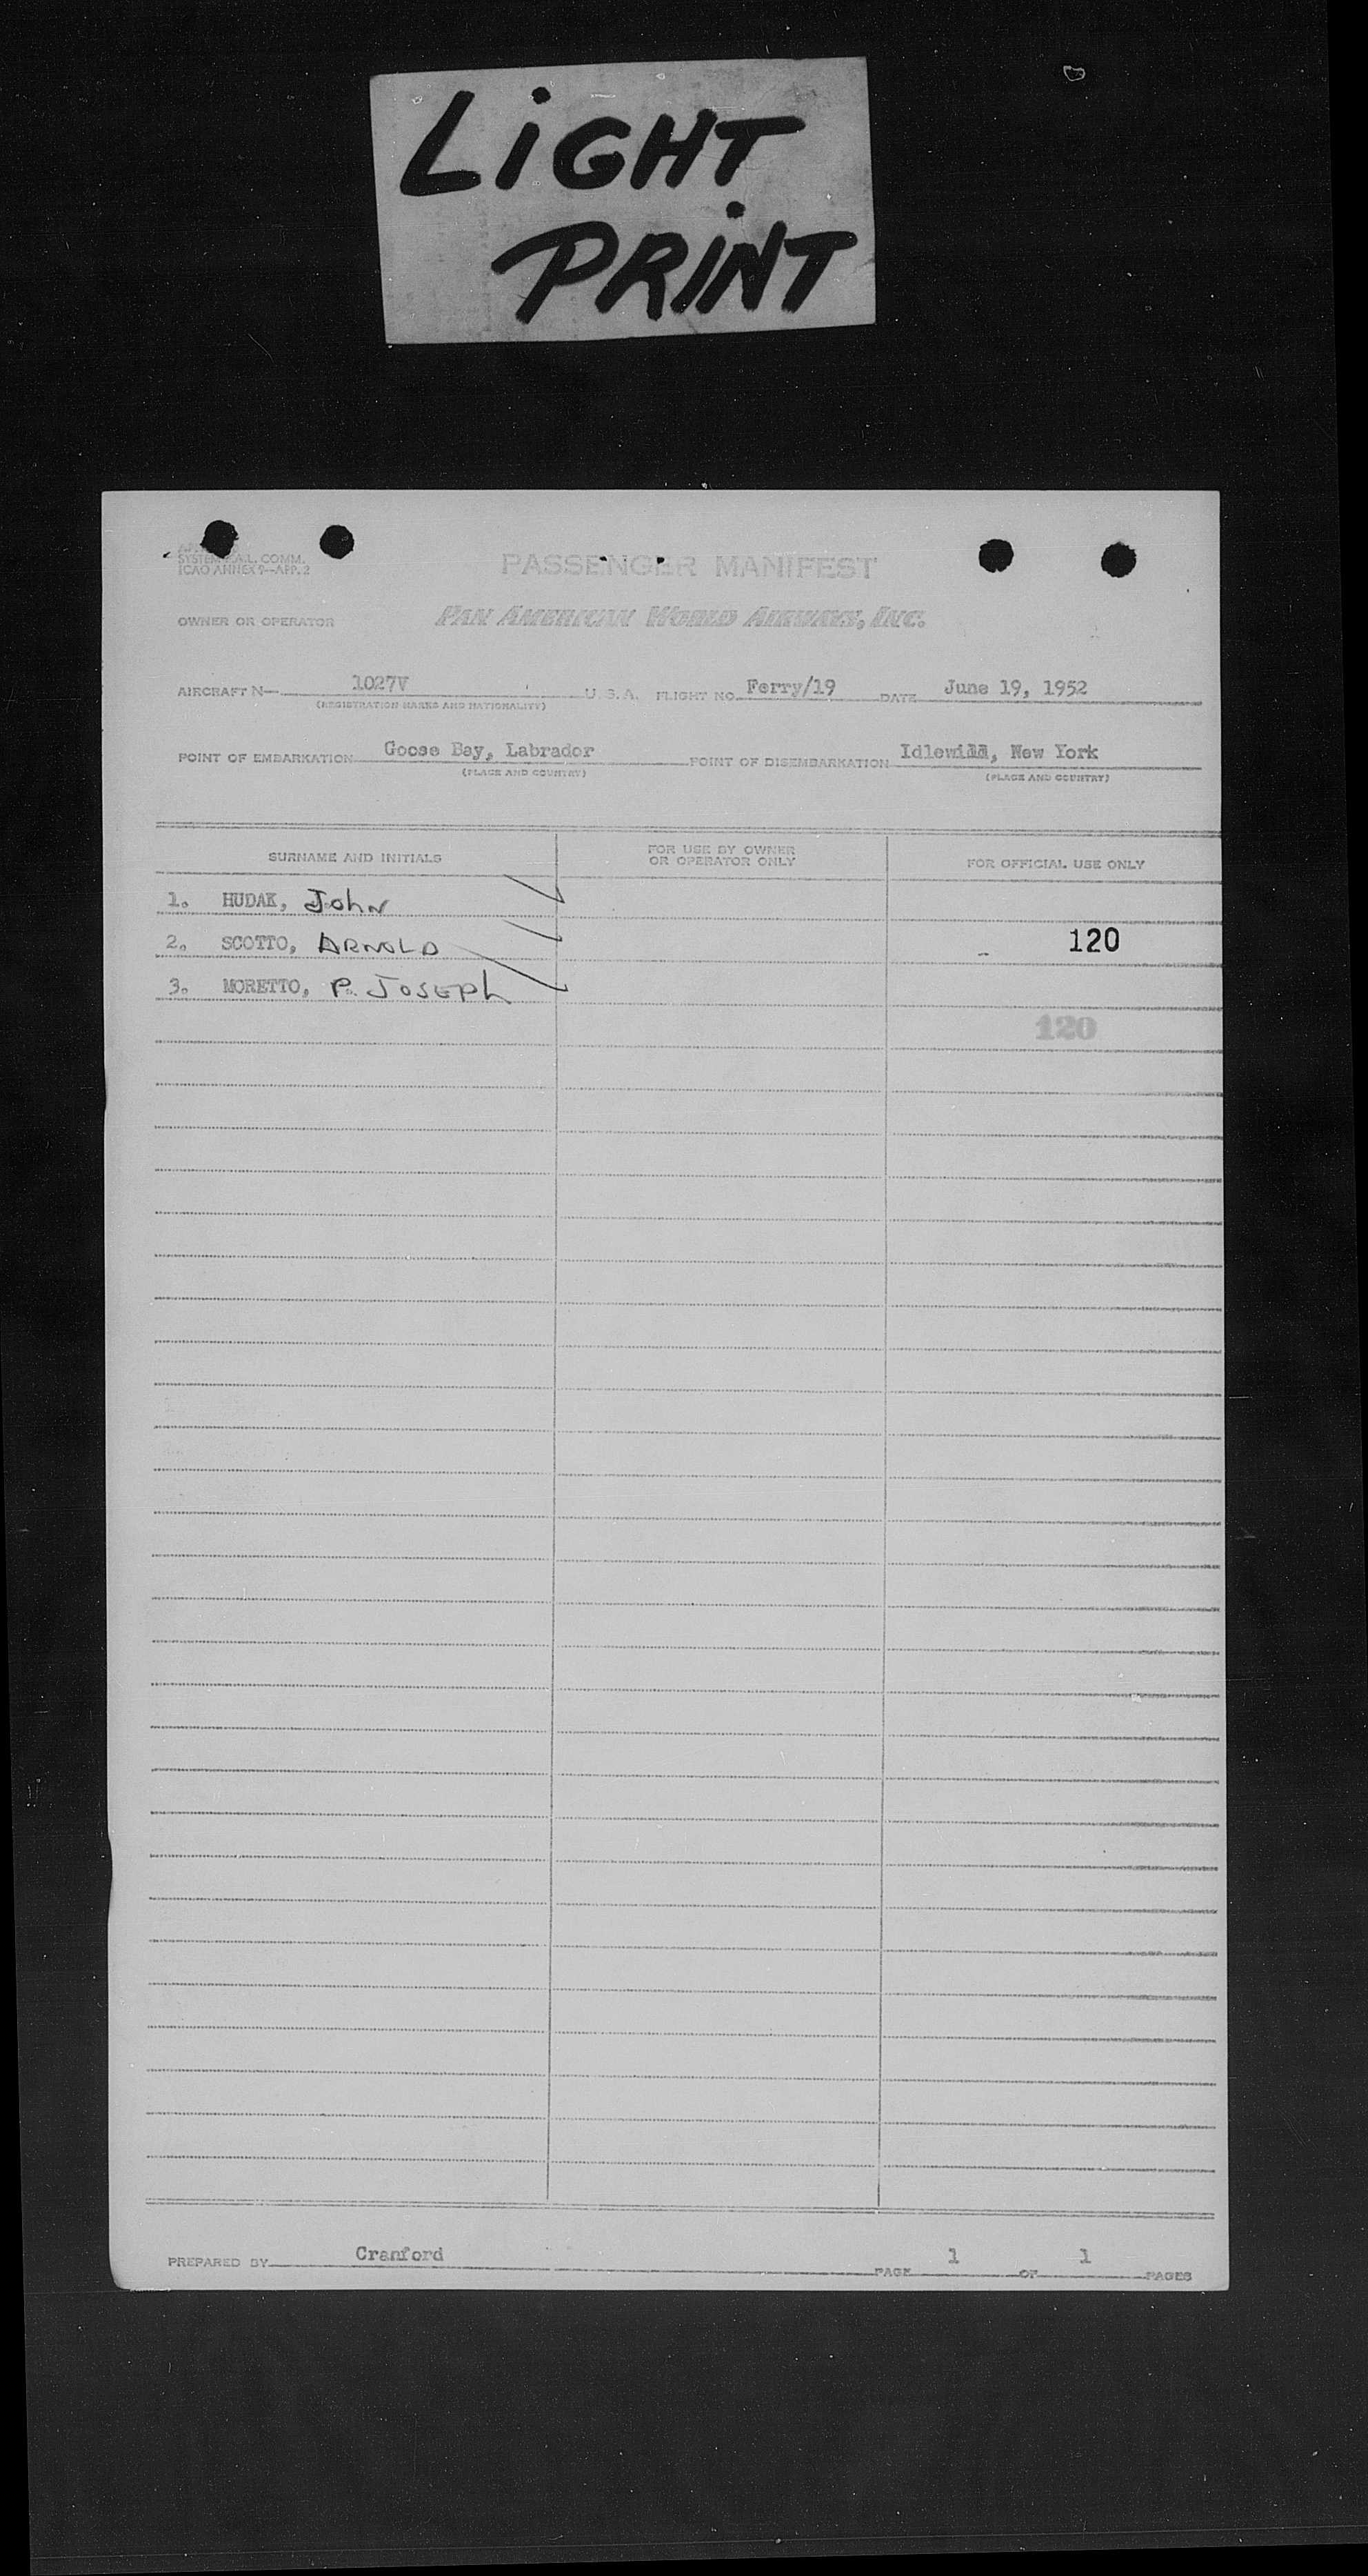 LiGHT
PRiNT
SYSTEM
A.L. COMM.
ICAO ANNEX 9—APP. 2
PASSENGER MANIFEST
OWNER OR OPERATOR PAN AMERICAN WORLD AIRWAYS, INC.
AIRCRAFT N— 1027V U. S. A. FLIGHT NO. Ferry/19 DATE June 19, 1952
(REGISTRATION MARKS AND NATIONALITY)
POINT OF EMBARKATION Goose Bay, Labrador POINT OF DISEMBARKATION Idlewild, New York
(PLACE AND COUNTRY) (PLACE AND COUNTRY)
SURNAME AND INITIALS
FOR USE BY OWNER
OR OPERATOR ONLY
FOR OFFICIAL USE ONLY
1. HUDAK, John
2. SCOTTO, ARNOLD 120
3. MORETTO, P. JOSEPH
120
PREPARED BY Cranford PAGE 1 OF 1 PAGES